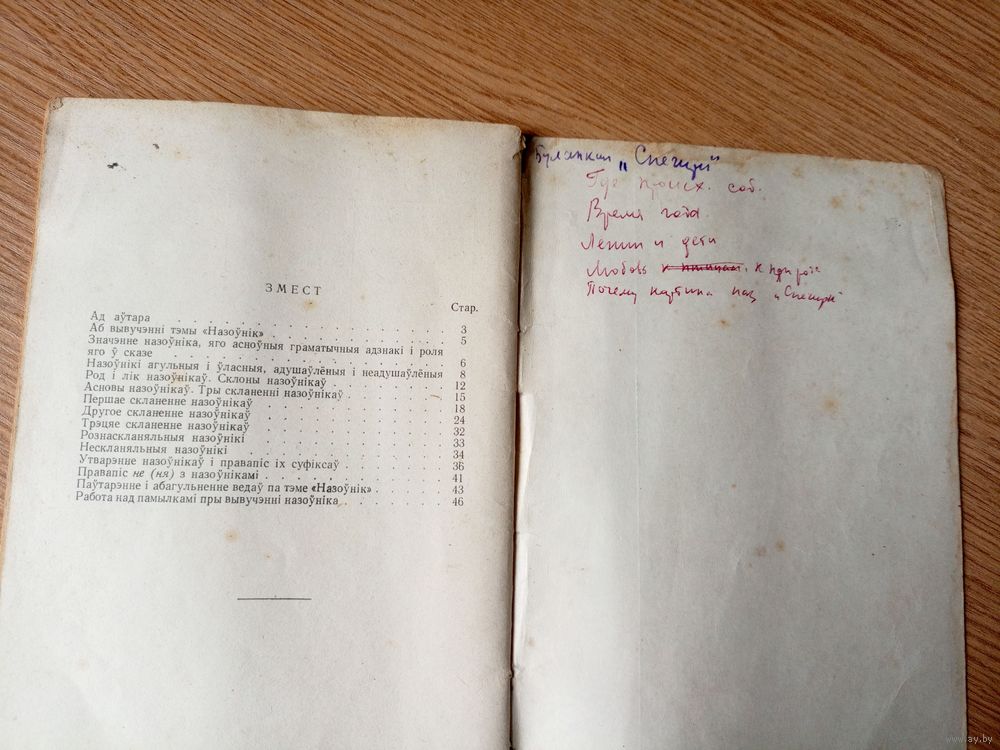 ЗМЕСТ
Стар.
Ад аўтара . . . . . . . . . . . . 3
Аб вывучэнні тэмы «Назоўнік» . . . . . . . . 5
Значэнне назоўніка, яго асноўныя граматычныя адзнакі і роля
яго ў сказе . . . . . . . . . . . . 6
Назоўнікі агульныя і ўласныя, адушаўлёныя і неадушаўлёныя 8
Род і лік назоўнікаў. Склоны назоўнікаў . . . . . . 12
Асновы назоўнікаў. Тры скланенні назоўнікаў . . . . . 15
Першае скланенне назоўнікаў . . . . . . . . 18
Другое скланенне назоўнікаў . . . . . . . . 24
Трэцяе скланенне назоўнікаў . . . . . . . . 32
Рознаскланяльныя назоўнікі . . . . . . . . 33
Нескланяльныя назоўнікі . . . . . . . . . 34
Утварэнне назоўнікаў і правапіс іх суфіксаў . . . . . 36
Правапіс не (ня) з назоўнікамі . . . . . . . . 41
Паўтарэнне і абагульненне ведаў па тэме «Назоўнік» . . . 43
Работа над памылкамі пры вывучэнні назоўніка . . . . . 46
„Снегири"
Где происх. соб.
Время года.
Ленин и дети
Любовь к птицам, к природе
Почему картина наз. „Снегири"
www.ay.by